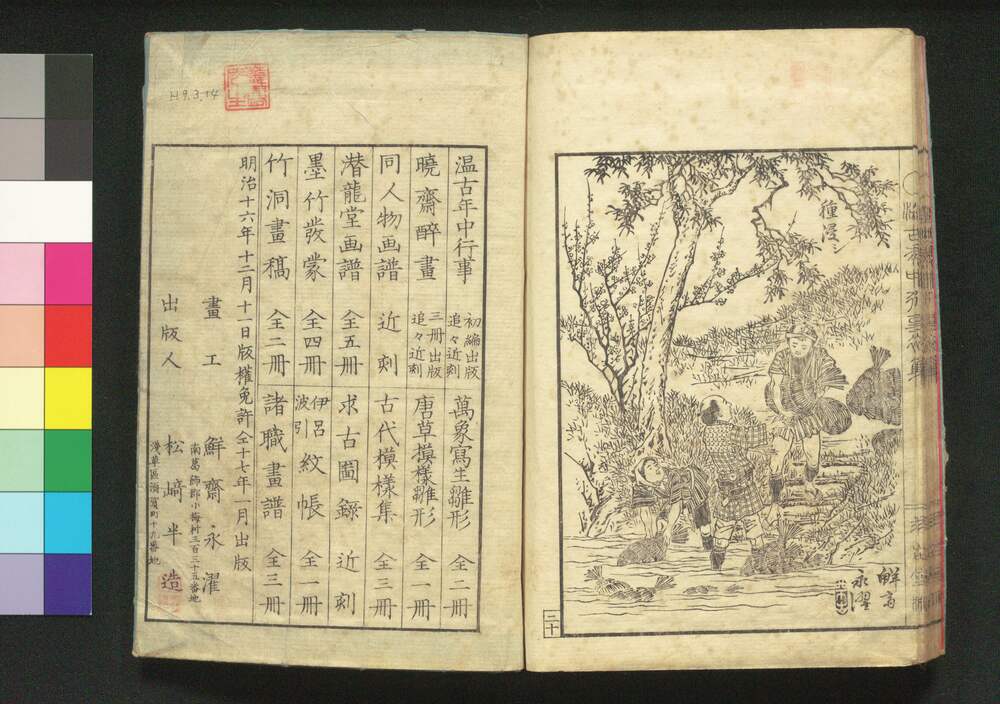 種浸シ
鮮斎
永濯
二十
温古年中行事 初編出版 追々近刻
暁齋醉畫 三冊出版 追々近刻
同人物画譜 近刻
潜龍堂画譜 全五冊
墨竹發蒙 全四冊
竹洞畫稿 全二冊
萬象寫生雛形 全二冊
唐草摸樣雛形 全一冊
古代摸樣集 全三冊
求古圖錄 近刻
伊呂波引紋帳 全一冊
諸職畫譜 全三冊
明治十六年十二月十一日版權免許仝十七年一月出版
南葛飾郡小梅村三百三十五番地
畫工 鮮齋永濯
出版人 松﨑半造
H9.3.14